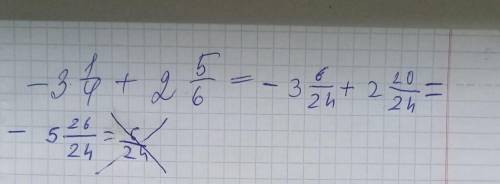 -3 1/4 + 2 5/6 = -3 6/24 + 2 20/24 =
- 5 26/24 = 6/24